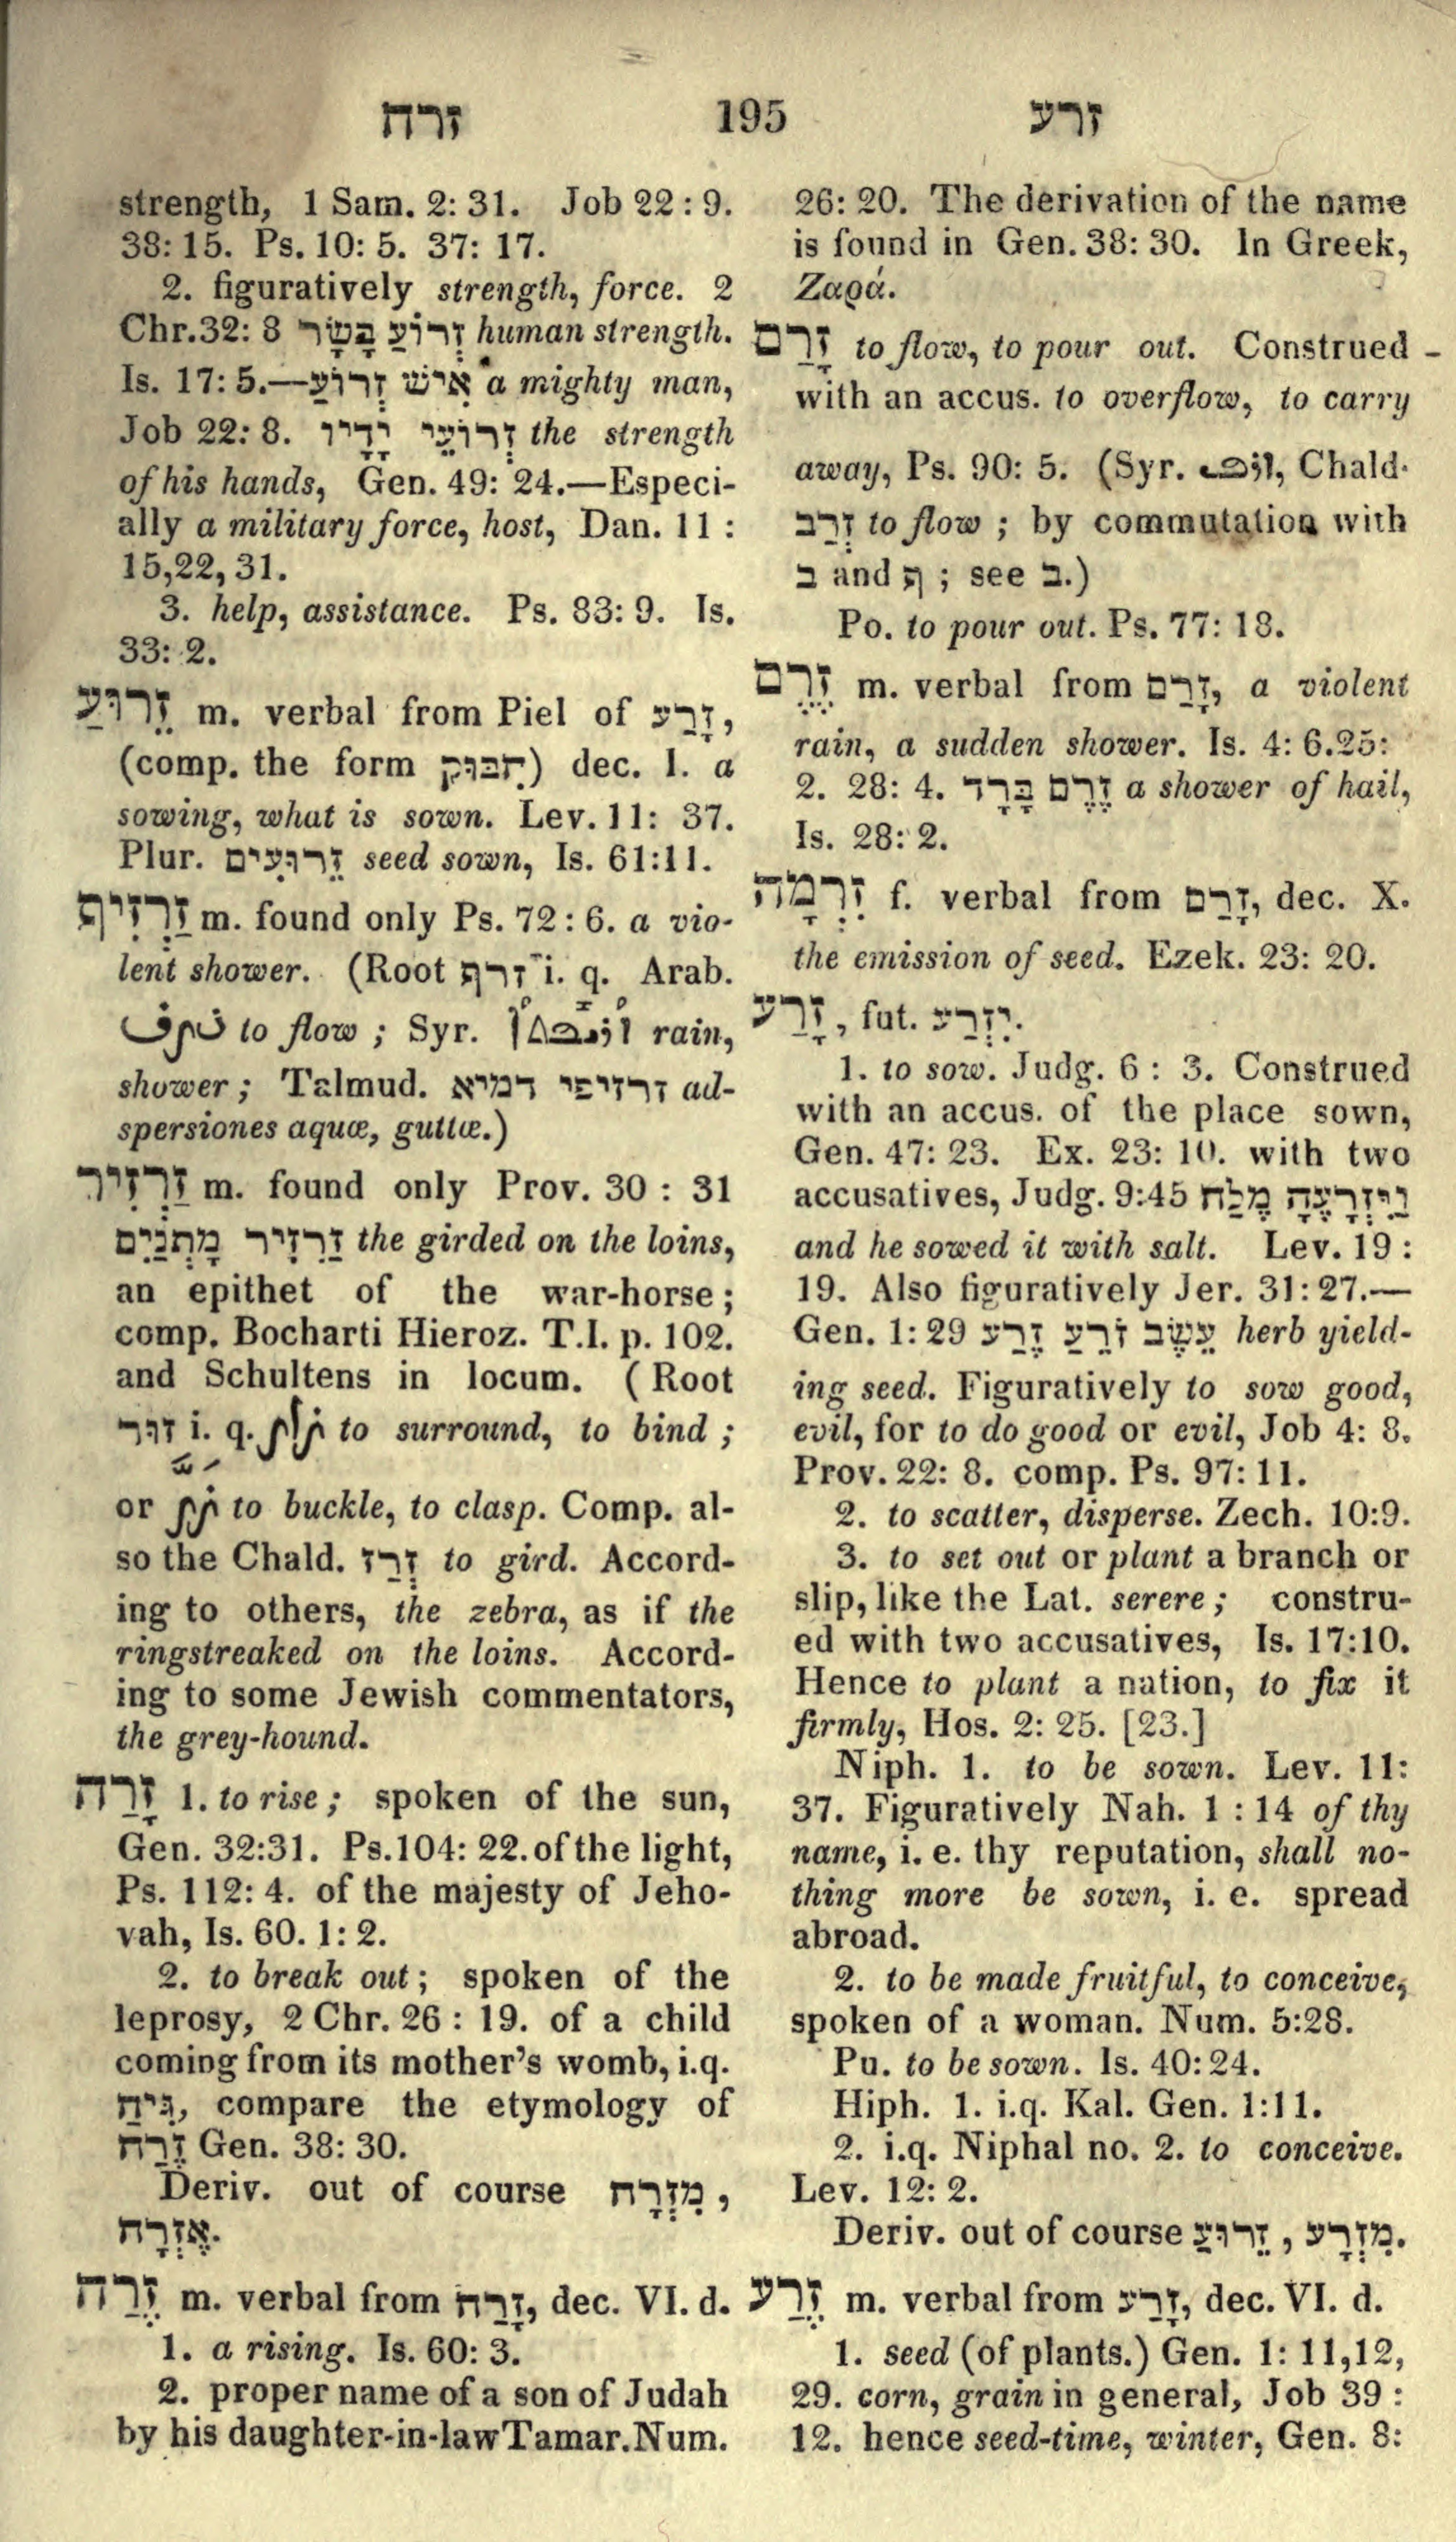 זרח 195 זרע
strength, 1 Sam. 2: 31. Job 22 : 9.
38: 15. Ps. 10: 5. 37: 17.
2. figuratively strength, force. 2
Chr.32: 8 זְרוֹעַ בָּשָׂר human strength.
Is. 17: 5.—אִישׁ זְרוֹעַ a mighty man,
Job 22: 8. זְרוֹעֵי יָדָיו the strength
of his hands, Gen. 49: 24.—Especi-
ally a military force, host, Dan. 11 :
15,22, 31.
3. help, assistance. Ps. 83: 9. Is.
33: 2.
זֵרוּעַ m. verbal from Piel of זָרַע,
(comp. the form חִבּוּק) dec. I. a
sowing, what is sown. Lev. 11: 37.
Plur. זֵרוּעִים seed sown, Is. 61:11.
זַרְזִיף m. found only Ps. 72 : 6. a vio-
lent shower. (Root זרף i. q. Arab.
ذرف to flow ; Syr. rain,
shower ; Talmud. זרזיפי דמיא ad-
spersiones aquæ, guttæ.)
זַרְזִיר m. found only Prov. 30 : 31
זַרְזִיר מָתְנַיִם the girded on the loins,
an epithet of the war-horse ;
comp. Bocharti Hieroz. T.I. p. 102.
and Schultens in locum. ( Root
זוּר i. q. to surround, to bind ;
or زرّ to buckle, to clasp. Comp. al-
so the Chald. זְרַז to gird. Accord-
ing to others, the zebra, as if the
ringstreaked on the loins. Accord-
ing to some Jewish commentators,
the grey-hound.
זָרַח 1. to rise ; spoken of the sun,
Gen. 32:31. Ps.104: 22. of the light,
Ps. 112: 4. of the majesty of Jeho-
vah, Is. 60. 1: 2.
2. to break out ; spoken of the
leprosy, 2 Chr. 26 : 19. of a child
coming from its mother's womb, i.q.
גִּיחַ, compare the etymology of
זֶרַח Gen. 38: 30.
Deriv. out of course מִזְרָח ,
אֶזְרָח.
זֶרַח m. verbal from זָרַח, dec. VI. d.
1. a rising. Is. 60: 3.
2. proper name of a son of Judah
by his daughter-in-law Tamar. Num.
26: 20. The derivation of the name
is found in Gen. 38: 30. In Greek,
Ζαρά.
זָרַם to flow, to pour out. Construed
with an accus. to overflow, to carry
away, Ps. 90: 5. (Syr. , Chald.
זְרַב to flow ; by commutation with
ב and ף ; see ב.)
Po. to pour out. Ps. 77: 18.
זֶרֶם m. verbal from זָרַם, a violent
rain, a sudden shower. Is. 4: 6.25:
2. 28: 4. זֶרֶם בָּרָד a shower of hail,
Is. 28: 2.
זִרְמָה f. verbal from זָרַם, dec. X.
the emission of seed. Ezek. 23: 20.
זָרַע , fut. יִזְרַע.
1. to sow. Judg. 6 : 3. Construed
with an accus. of the place sown,
Gen. 47: 23. Ex. 23: 10. with two
accusatives, Judg. 9:45 וַיִּזְרָעֶהָ מֶלַח
and he sowed it with salt. Lev. 19 :
19. Also figuratively Jer. 31: 27.—
Gen. 1: 29 עֵשֶׂב זֹרֵעַ זֶרַע herb yield-
ing seed. Figuratively to sow good,
evil, for to do good or evil, Job 4: 8.
Prov. 22: 8. comp. Ps. 97: 11.
2. to scatter, disperse. Zech. 10:9.
3. to set out or plant a branch or
slip, like the Lat. serere ; constru-
ed with two accusatives, Is. 17:10.
Hence to plant a nation, to fix it
firmly, Hos. 2: 25. [23.]
Niph. 1. to be sown. Lev. 11:
37. Figuratively Nah. 1 : 14 of thy
name, i. e. thy reputation, shall no-
thing more be sown, i. e. spread
abroad.
2. to be made fruitful, to conceive,
spoken of a woman. Num. 5:28.
Pu. to be sown. Is. 40: 24.
Hiph. 1. i.q. Kal. Gen. 1:11.
2. i.q. Niphal no. 2. to conceive.
Lev. 12: 2.
Deriv. out of course זֵרוּעַ , מִזְרָע.
זֶרַע m. verbal from זָרַע, dec. VI. d.
1. seed (of plants.) Gen. 1: 11,12,
29. corn, grain in general, Job 39 :
12. hence seed-time, winter, Gen. 8: